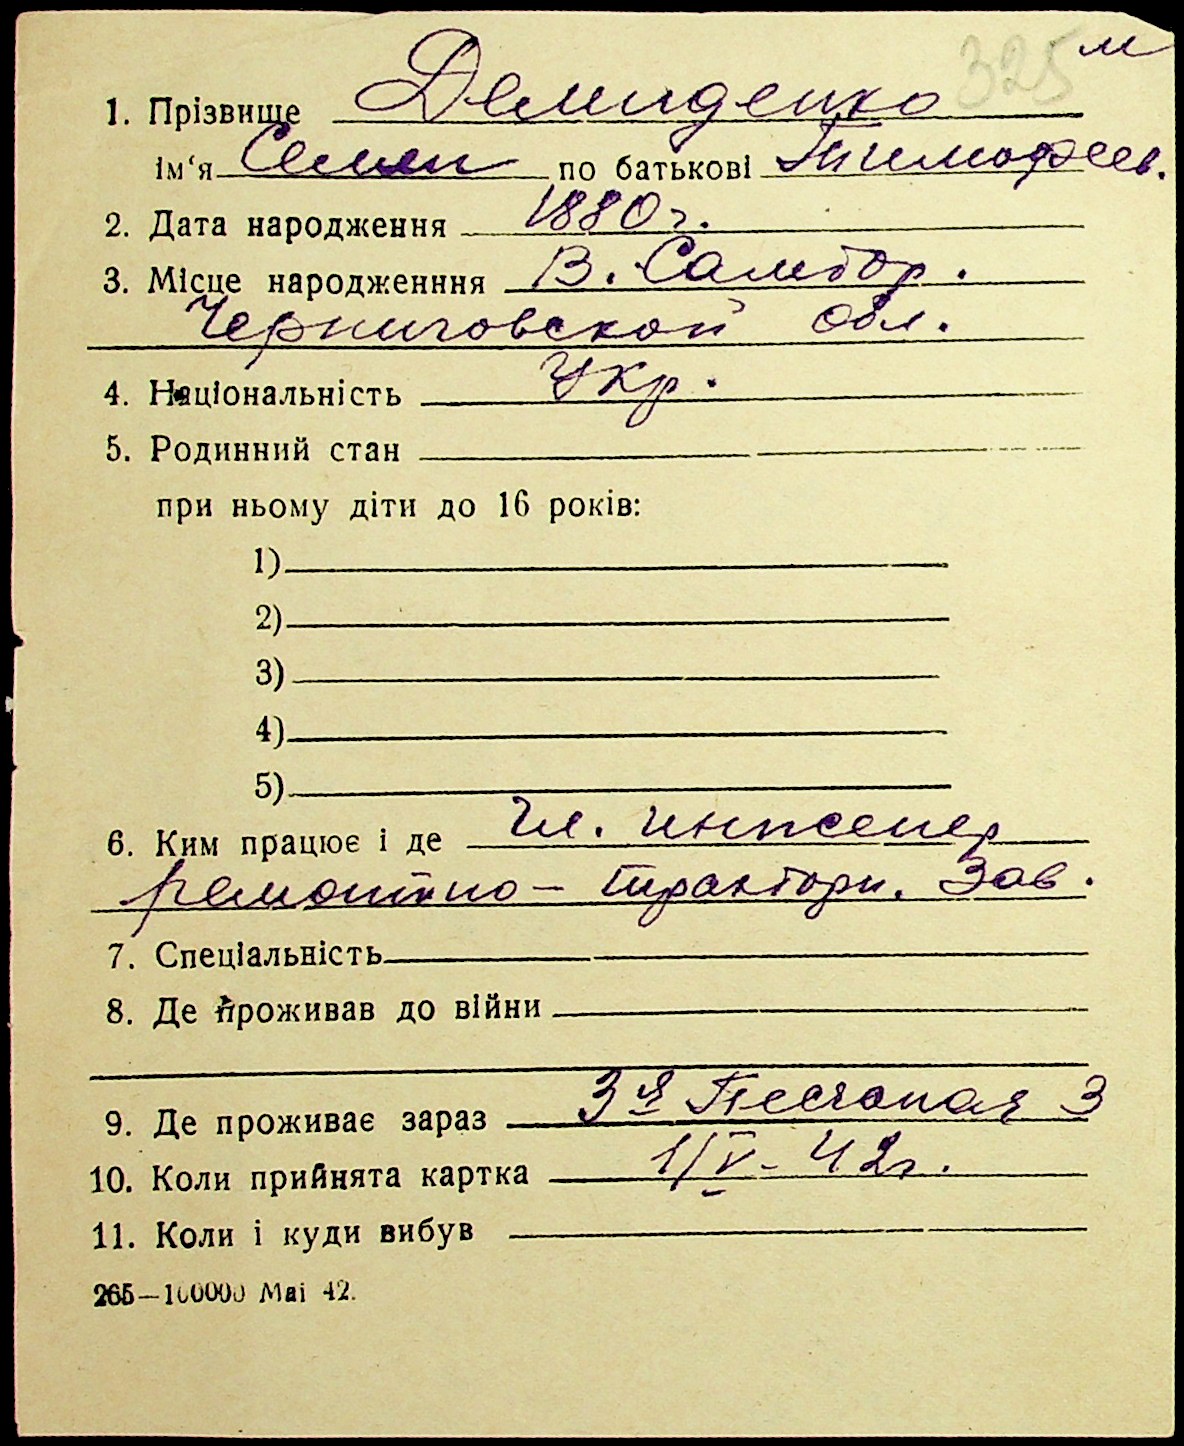 325 м
1. Прізвище Демиденко
ім'я Семен по батькові Тимофеев.
2. Дата народження 1880 г.
3. Місце народженння В. Самбор.
Черниговской обл.
4. Національність Укр.
5. Родинний стан
при ньому діти до 16 років:
1)
2)
3)
4)
5)
6. Ким працює і де гл. инженер
ремонтно-трактори. Зав.
7. Спеціальність
8. Де проживав до війни
9. Де проживає зараз 3я Песчаная 3
10. Коли прийнята картка 1/V-42г.
11. Коли і куди вибув
265—100000 Маі 42.